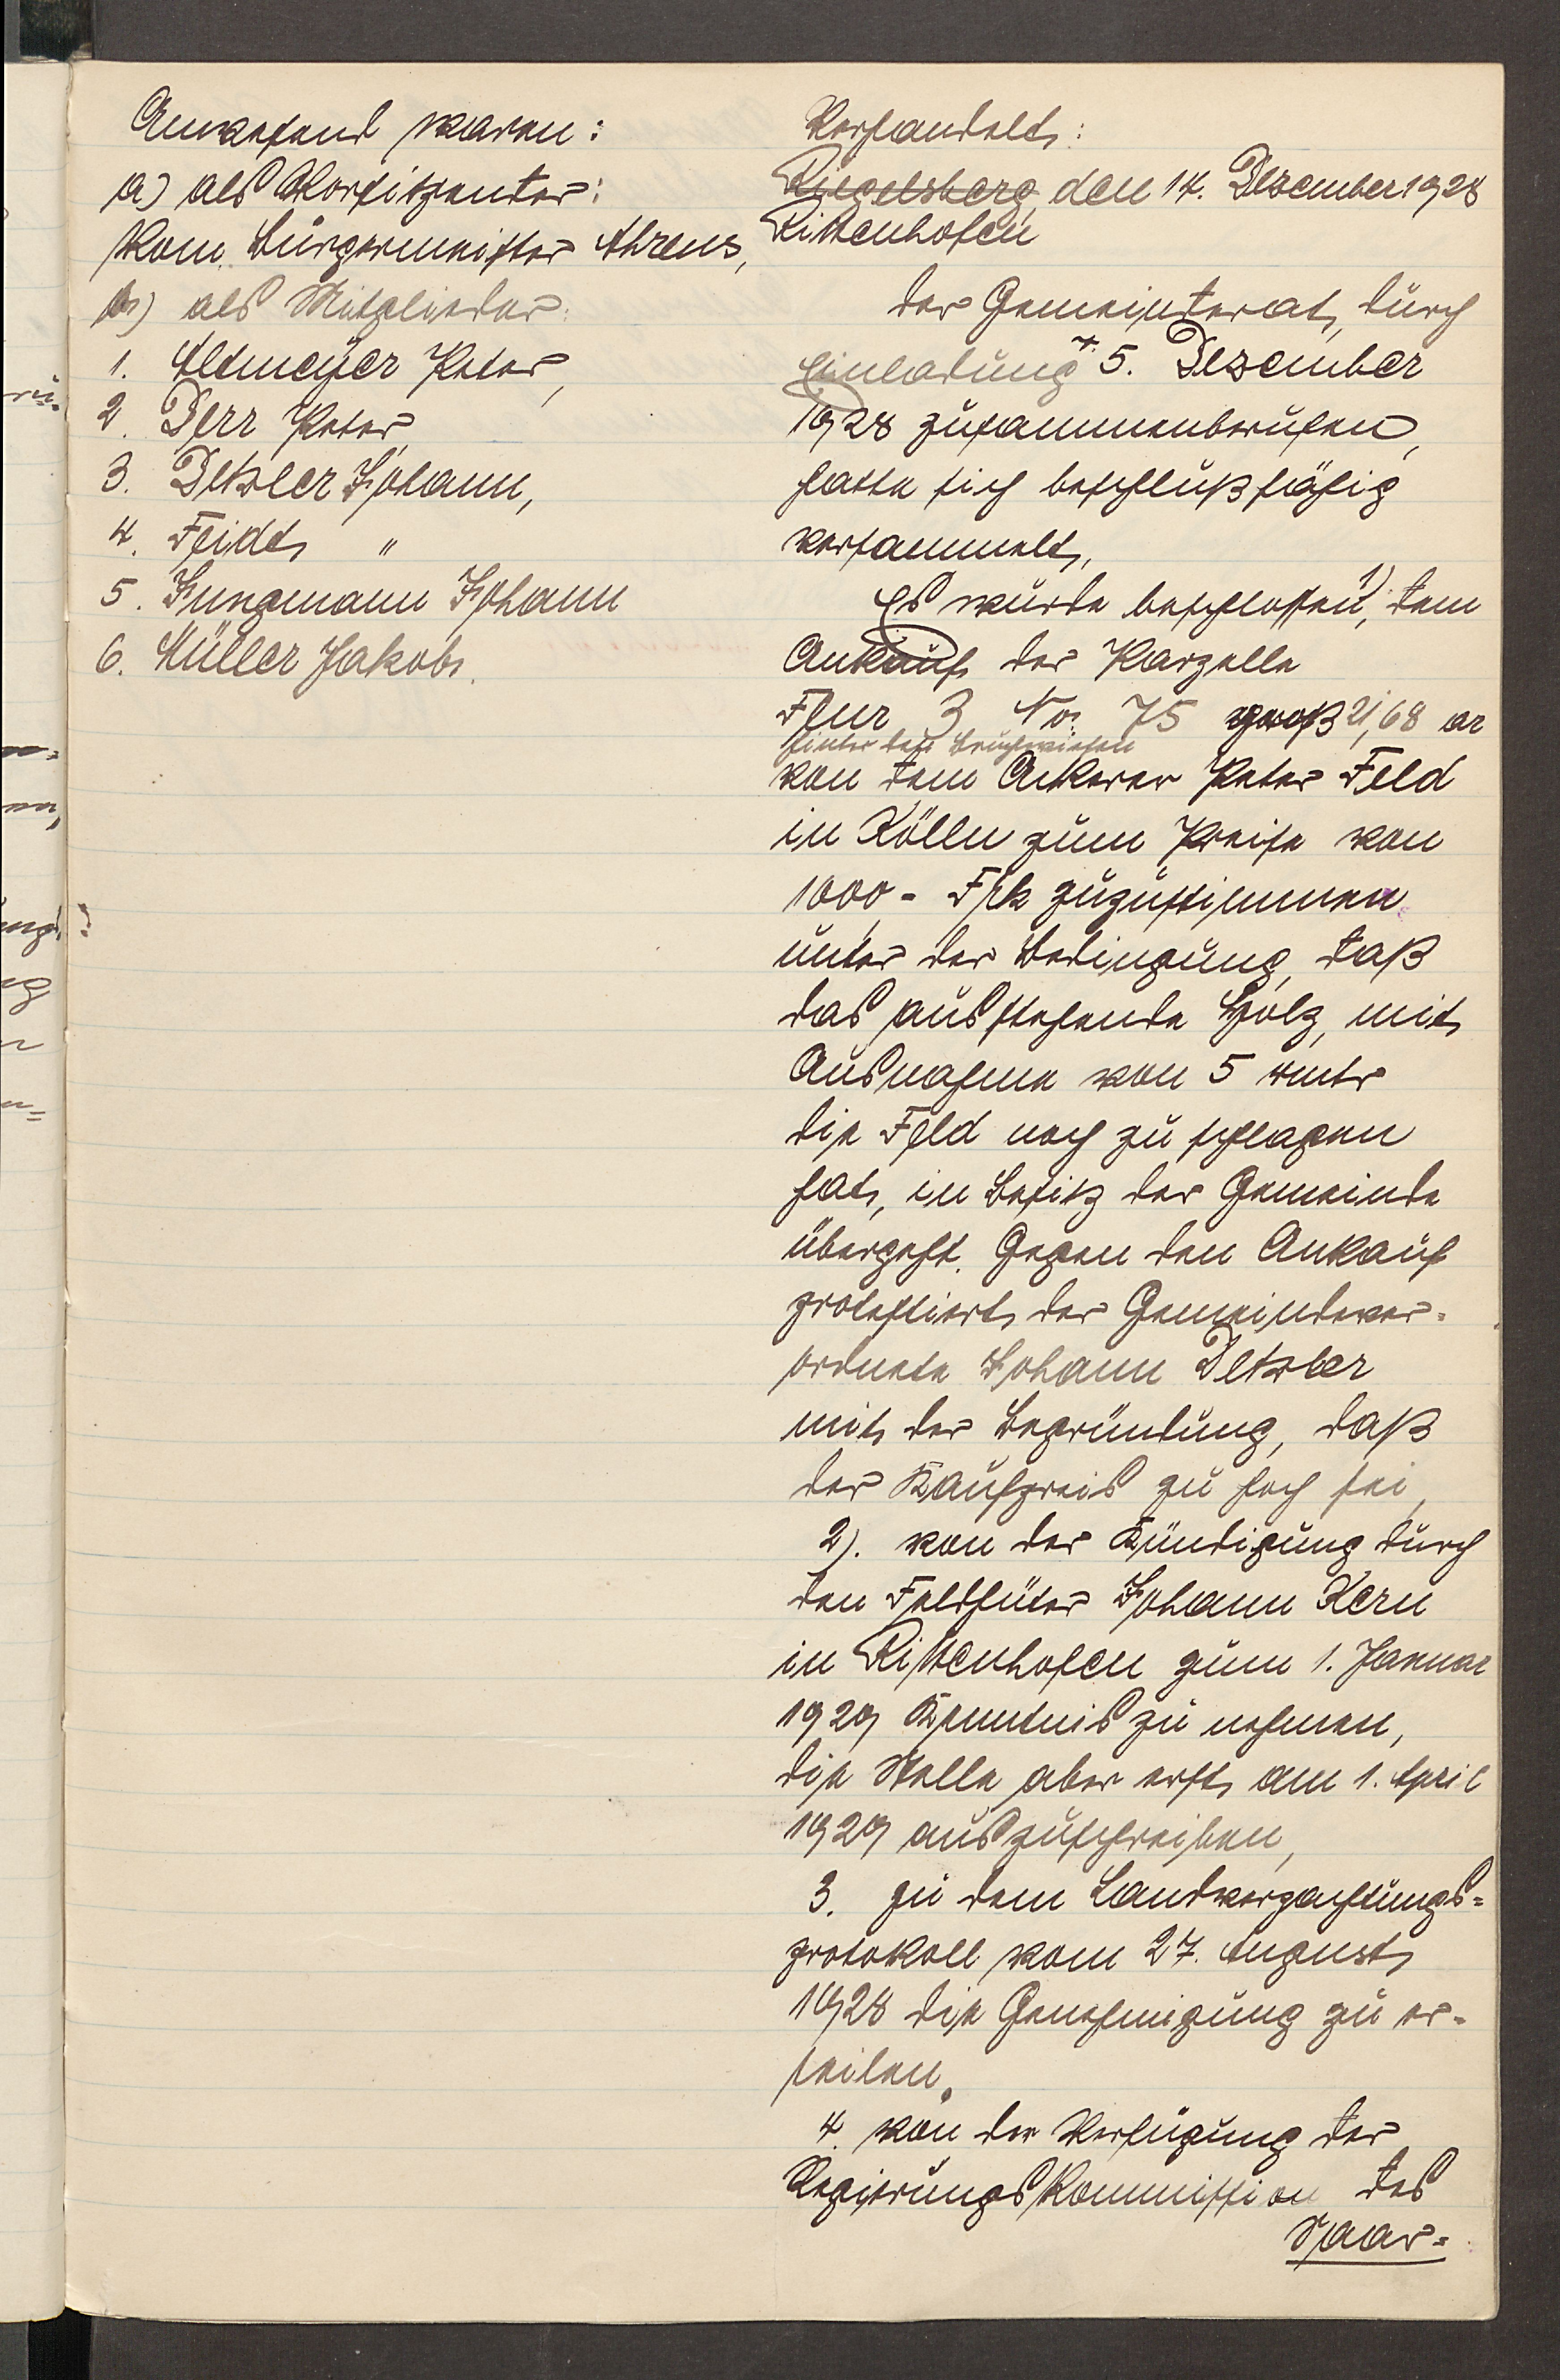 Anwesend waren:
a) als Vorsitzender:
Kom. Bürgermeister Ahrens,
b) als Mitglieder:
1. Altmeyer Peter,
2. Derr Peter,
3. Detzler Johann,
4. Feidt "
5. Jungmann Johann
6. Müller Jakob.
Verhandelt:
Riegelsberg, den 14. Dezember 1928
Rittenhofen
Der Gemeinderat, durch
Einladung v. 5. Dezember
1928 zusammenberufen,
hatte sich beschlußfähig
versammelt.
Es wurde beschlossen, 1) dem
Ankauf der Parzelle
Flur 3 No. 75 groß 21,68 ar
hinter den Bruchwiesen
von dem Ackerer Peter Feld
in Kölln zum Preise von
1000,- Frk zuzustimmen
unter der Bedingung, daß
das ausstehende Holz, mit
Ausnahme von 5
die Feld noch zu schlagen
hat, in Besitz der Gemeinde
übergeht. Gegen den Ankauf
protestiert der Gemeindever-
ordnete Johann Detzler
mit der Begründung, daß
der Kaufpreis zu hoch sei,
2). von der Kündigung durch
den Feldhüter Johann Kern
in Rittenhofen zum 1. Januar
1929 Kenntnis zu nehmen,
die Stelle aber erst am 1. April
1929 auszuschreiben,
3. zu dem Landverpachtungs-
protokoll vom 27. August
1928 die Genehmigung zu er-
teilen.
4. von der Verfügung der
Regierungskommission des
Saar-